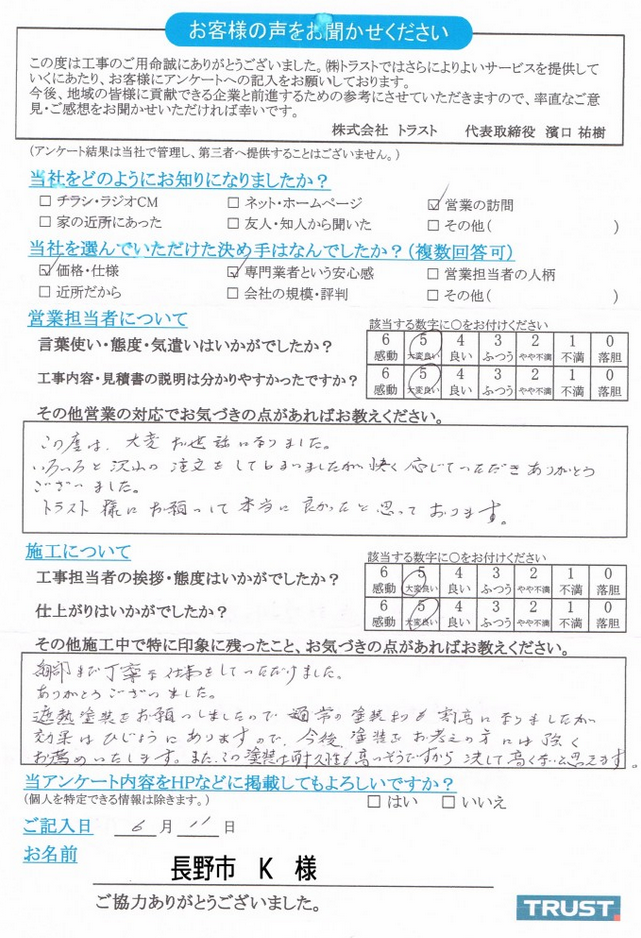 お客様の声をお聞かせください
この度は工事のご用命誠にありがとうございました。㈱トラストではさらによりよいサービスを提供して
いくにあたり、お客様にアンケートへの記入をお願いしております。
今後、地域の皆様に貢献できる企業と前進するための参考にさせていただきますので、率直なご意
見・ご感想をお聞かせいただければ幸いです。
株式会社 トラスト 代表取締役 濱口 祐樹
(アンケート結果は当社で管理し、第三者へ提供することはございません。)
当社をどのようにお知りになりましたか？
□ チラシ・ラジオCM □ ネット・ホームページ ☑ 営業の訪問
□ 家の近所にあった □ 友人・知人から聞いた □ その他( )
当社を選んでいただけた決め手はなんでしたか？(複数回答可)
☑ 価格・仕様 ☑ 専門業者という安心感 □ 営業担当者の人柄
□ 近所だから □ 会社の規模・評判 □ その他( )
営業担当者について
該当する数字に○をお付けください
言葉使い・態度・気遣いはいかがでしたか？ 6 5 4 3 2 1 0
感動 大変良い 良い ふつう やや不満 不満 落胆
工事内容・見積書の説明は分かりやすかったですか？ 6 5 4 3 2 1 0
感動 大変良い 良い ふつう やや不満 不満 落胆
その他営業の対応でお気づきの点があればお教えください。
この度は、大変お世話になりました。
いろいろと沢山の注文をしてしまいましたが快く応じていただきありがとう
ございました。
トラスト様にお願いして本当に良かったと思っております。
施工について
該当する数字に○をお付けください
工事担当者の挨拶・態度はいかがでしたか？ 6 5 4 3 2 1 0
感動 大変良い 良い ふつう やや不満 不満 落胆
仕上がりはいかがでしたか？ 6 5 4 3 2 1 0
感動 大変良い 良い ふつう やや不満 不満 落胆
その他施工中で特に印象に残ったこと、お気づきの点があればお教えください。
細部まで丁寧な仕事をしていただけました。
ありがとうございました。
遮熱塗装をお願いしましたので通常の塗装よりも割高になりましたが
効果はひじょうにありますので、今後、塗装をお考えの方には強く
お薦めいたします。また、この塗装は耐久性も高いそうですから決して高くないと思えます。
当アンケート内容をHPなどに掲載してもよろしいですか？
(個人を特定できる情報は除きます。) □ はい □ いいえ
ご記入日 6 月 11 日
お名前
長野市 K 様
ご協力ありがとうございました。
TRUST.